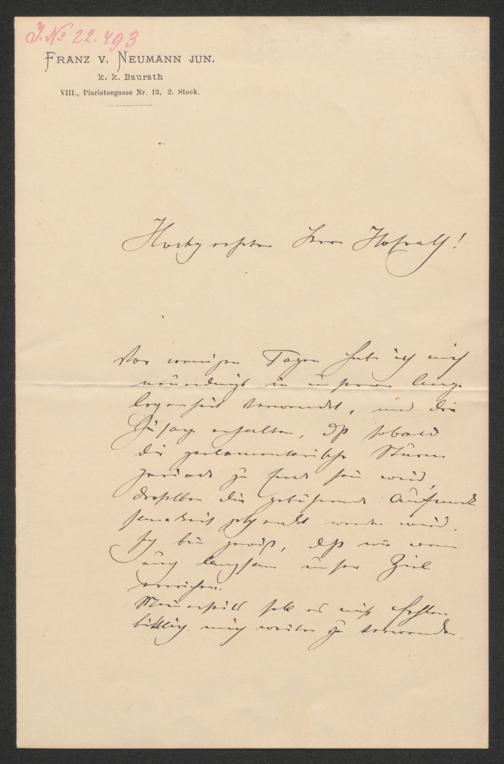 J. No 22.493
FRANZ V. NEUMANN JUN.
k. k. Baurath
VIII., Piaristengasse Nr. 13, 2. Stock.
Hochgeehrter Herr Hofrath!
Vor wenigen Tagen habe ich mich
neuerdings in unserer Ange-
legenheit verwendet, und die
Zusage erhalten, daß sobald
die parlamentarische Sturm
periode zu Ende sein wird,
derselben die gebührende Aufmerk
samkeit geschenkt werden wird.
Ich bin gewiß, daß wir wenn
auch langsam unser Ziel
erreichen.
Meinerseits soll es nicht fehlen
mich weiter zu verwenden.